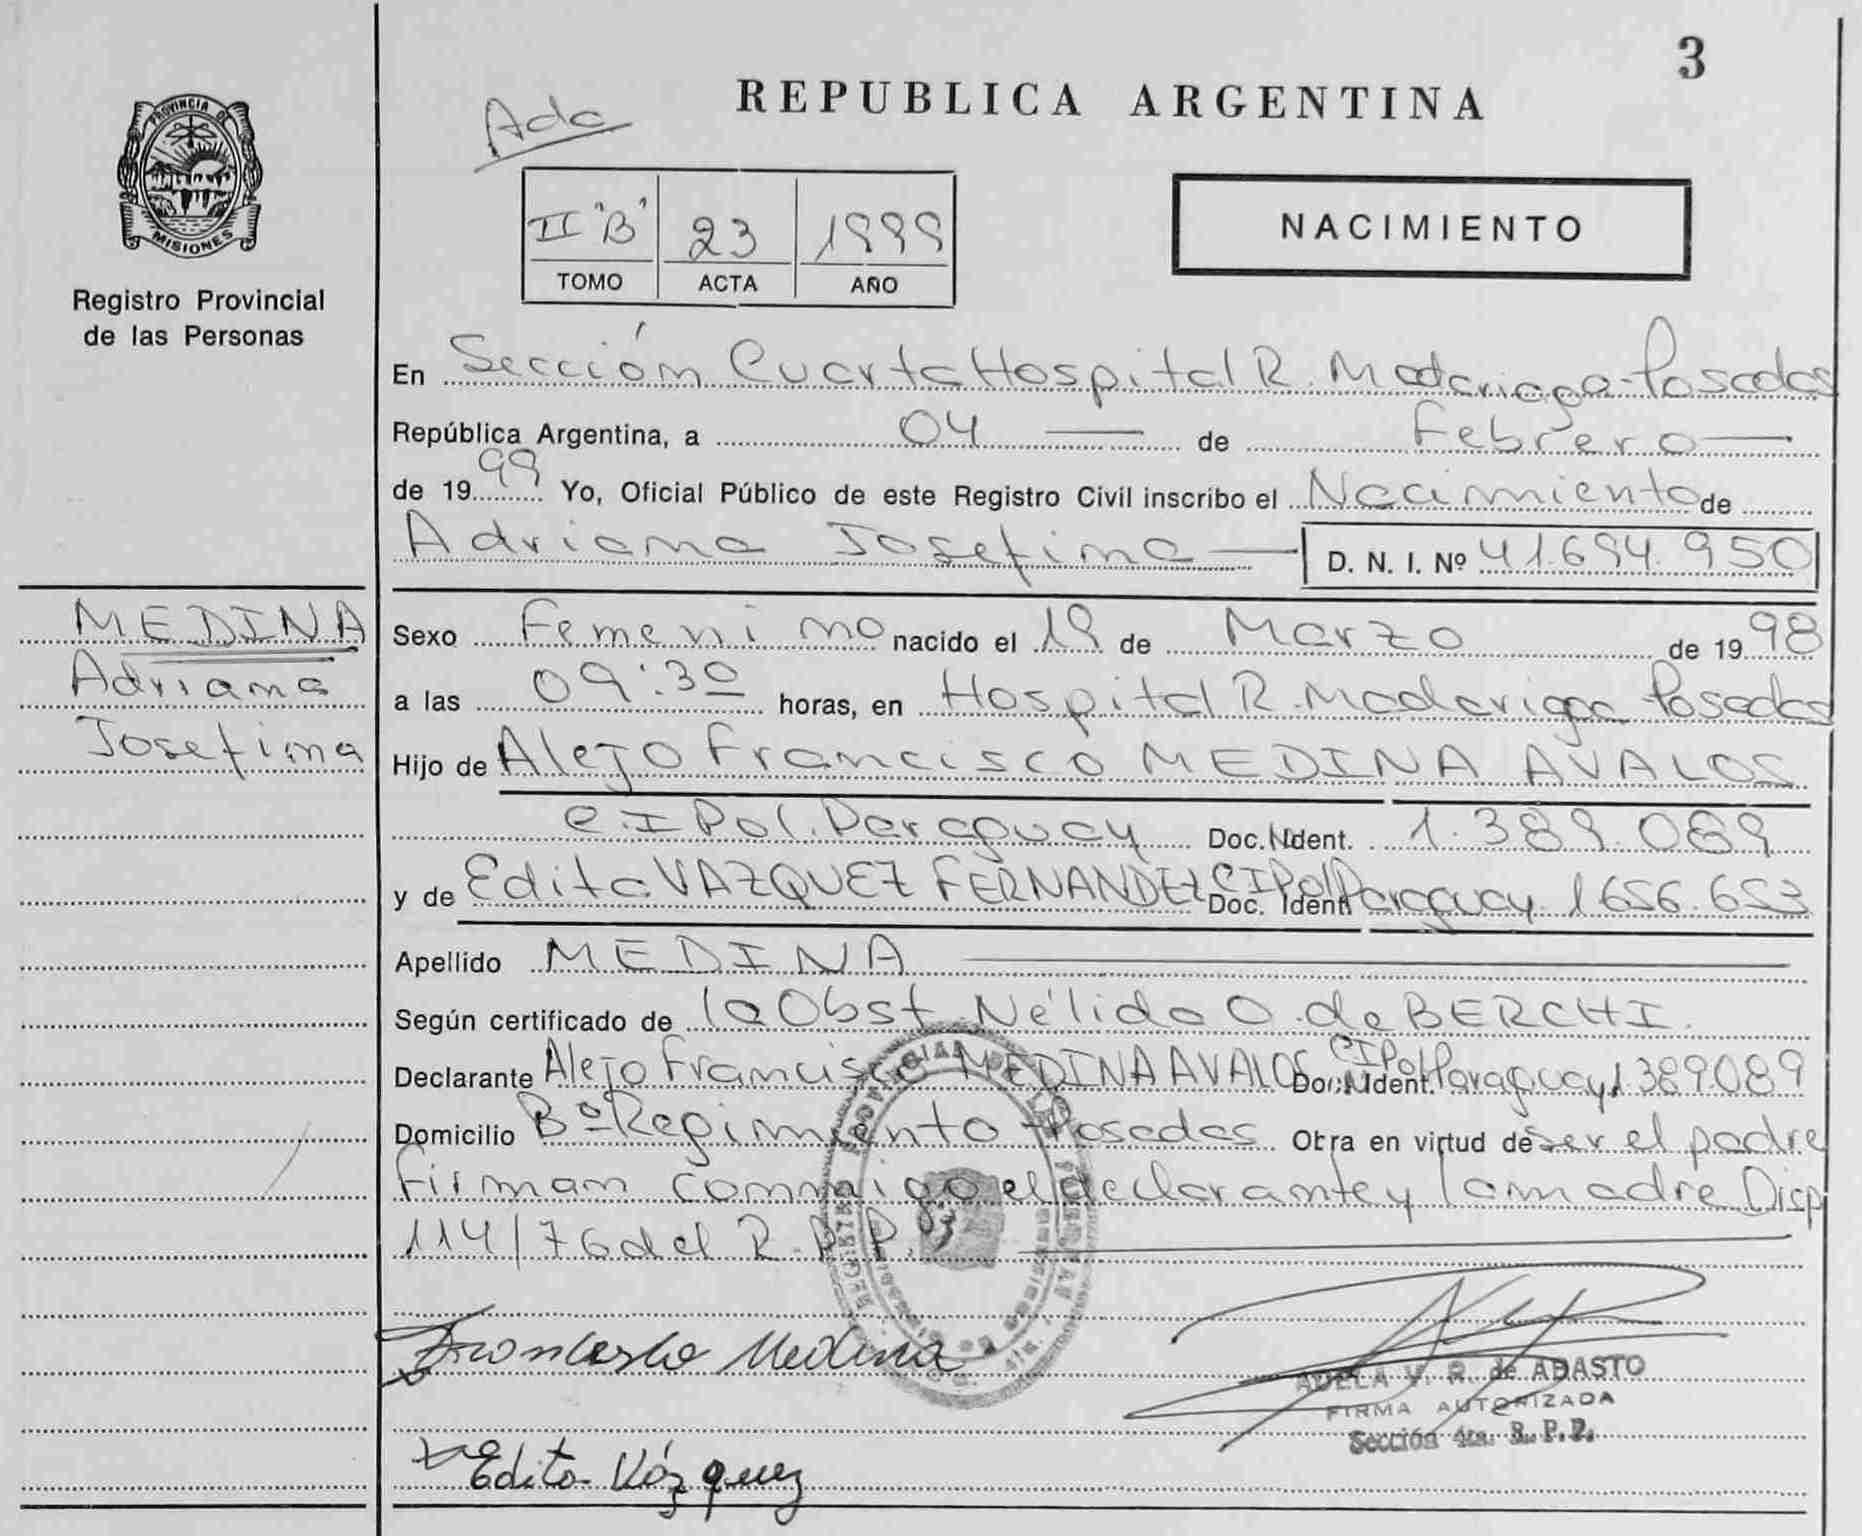 3
REPUBLICA ARGENTINA
Ada
PROVINCIA DE
MISIONES
Registro Provincial
de las Personas
II "B" 23 1999
TOMO ACTA AÑO
NACIMIENTO
En Sección Cuarta Hospital R. Madariaga-Posadas
República Argentina, a 04 de Febrero
de 1999 Yo, Oficial Público de este Registro Civil inscribo el Nacimiento de
Adriana Josefina D. N. I. Nº 41.694.950
MEDINA
Adriana
Josefina
Sexo Femenino nacido el 19 de Marzo de 1998
a las 09:30 horas, en Hospital R. Madariaga Posadas
Hijo de Alejo Francisco MEDINA AVALOS
C.I Pol. Paraguay Doc. Ident. 1.389.089
y de Edita VAZQUEZ FERNANDEZ Doc. Ident CI Pol Paraguay 1656.653
Apellido MEDINA
Según certificado de la Obst Nélida O. de BERCHI.
Declarante Alejo Francisco MEDINA AVALOS Doc. Ident. CI Pol Paraguay 1389.089
Domicilio Bº Regimiento-Posadas Obra en virtud de ser el padre
Firman conmigo el declarante y la madre Disp
114/76 del R.P.P.
Francisco Medina
ADELA V. R. de ABASTO
FIRMA AUTORIZADA
Sección 4ta. R. P. P.
Edita Vázquez